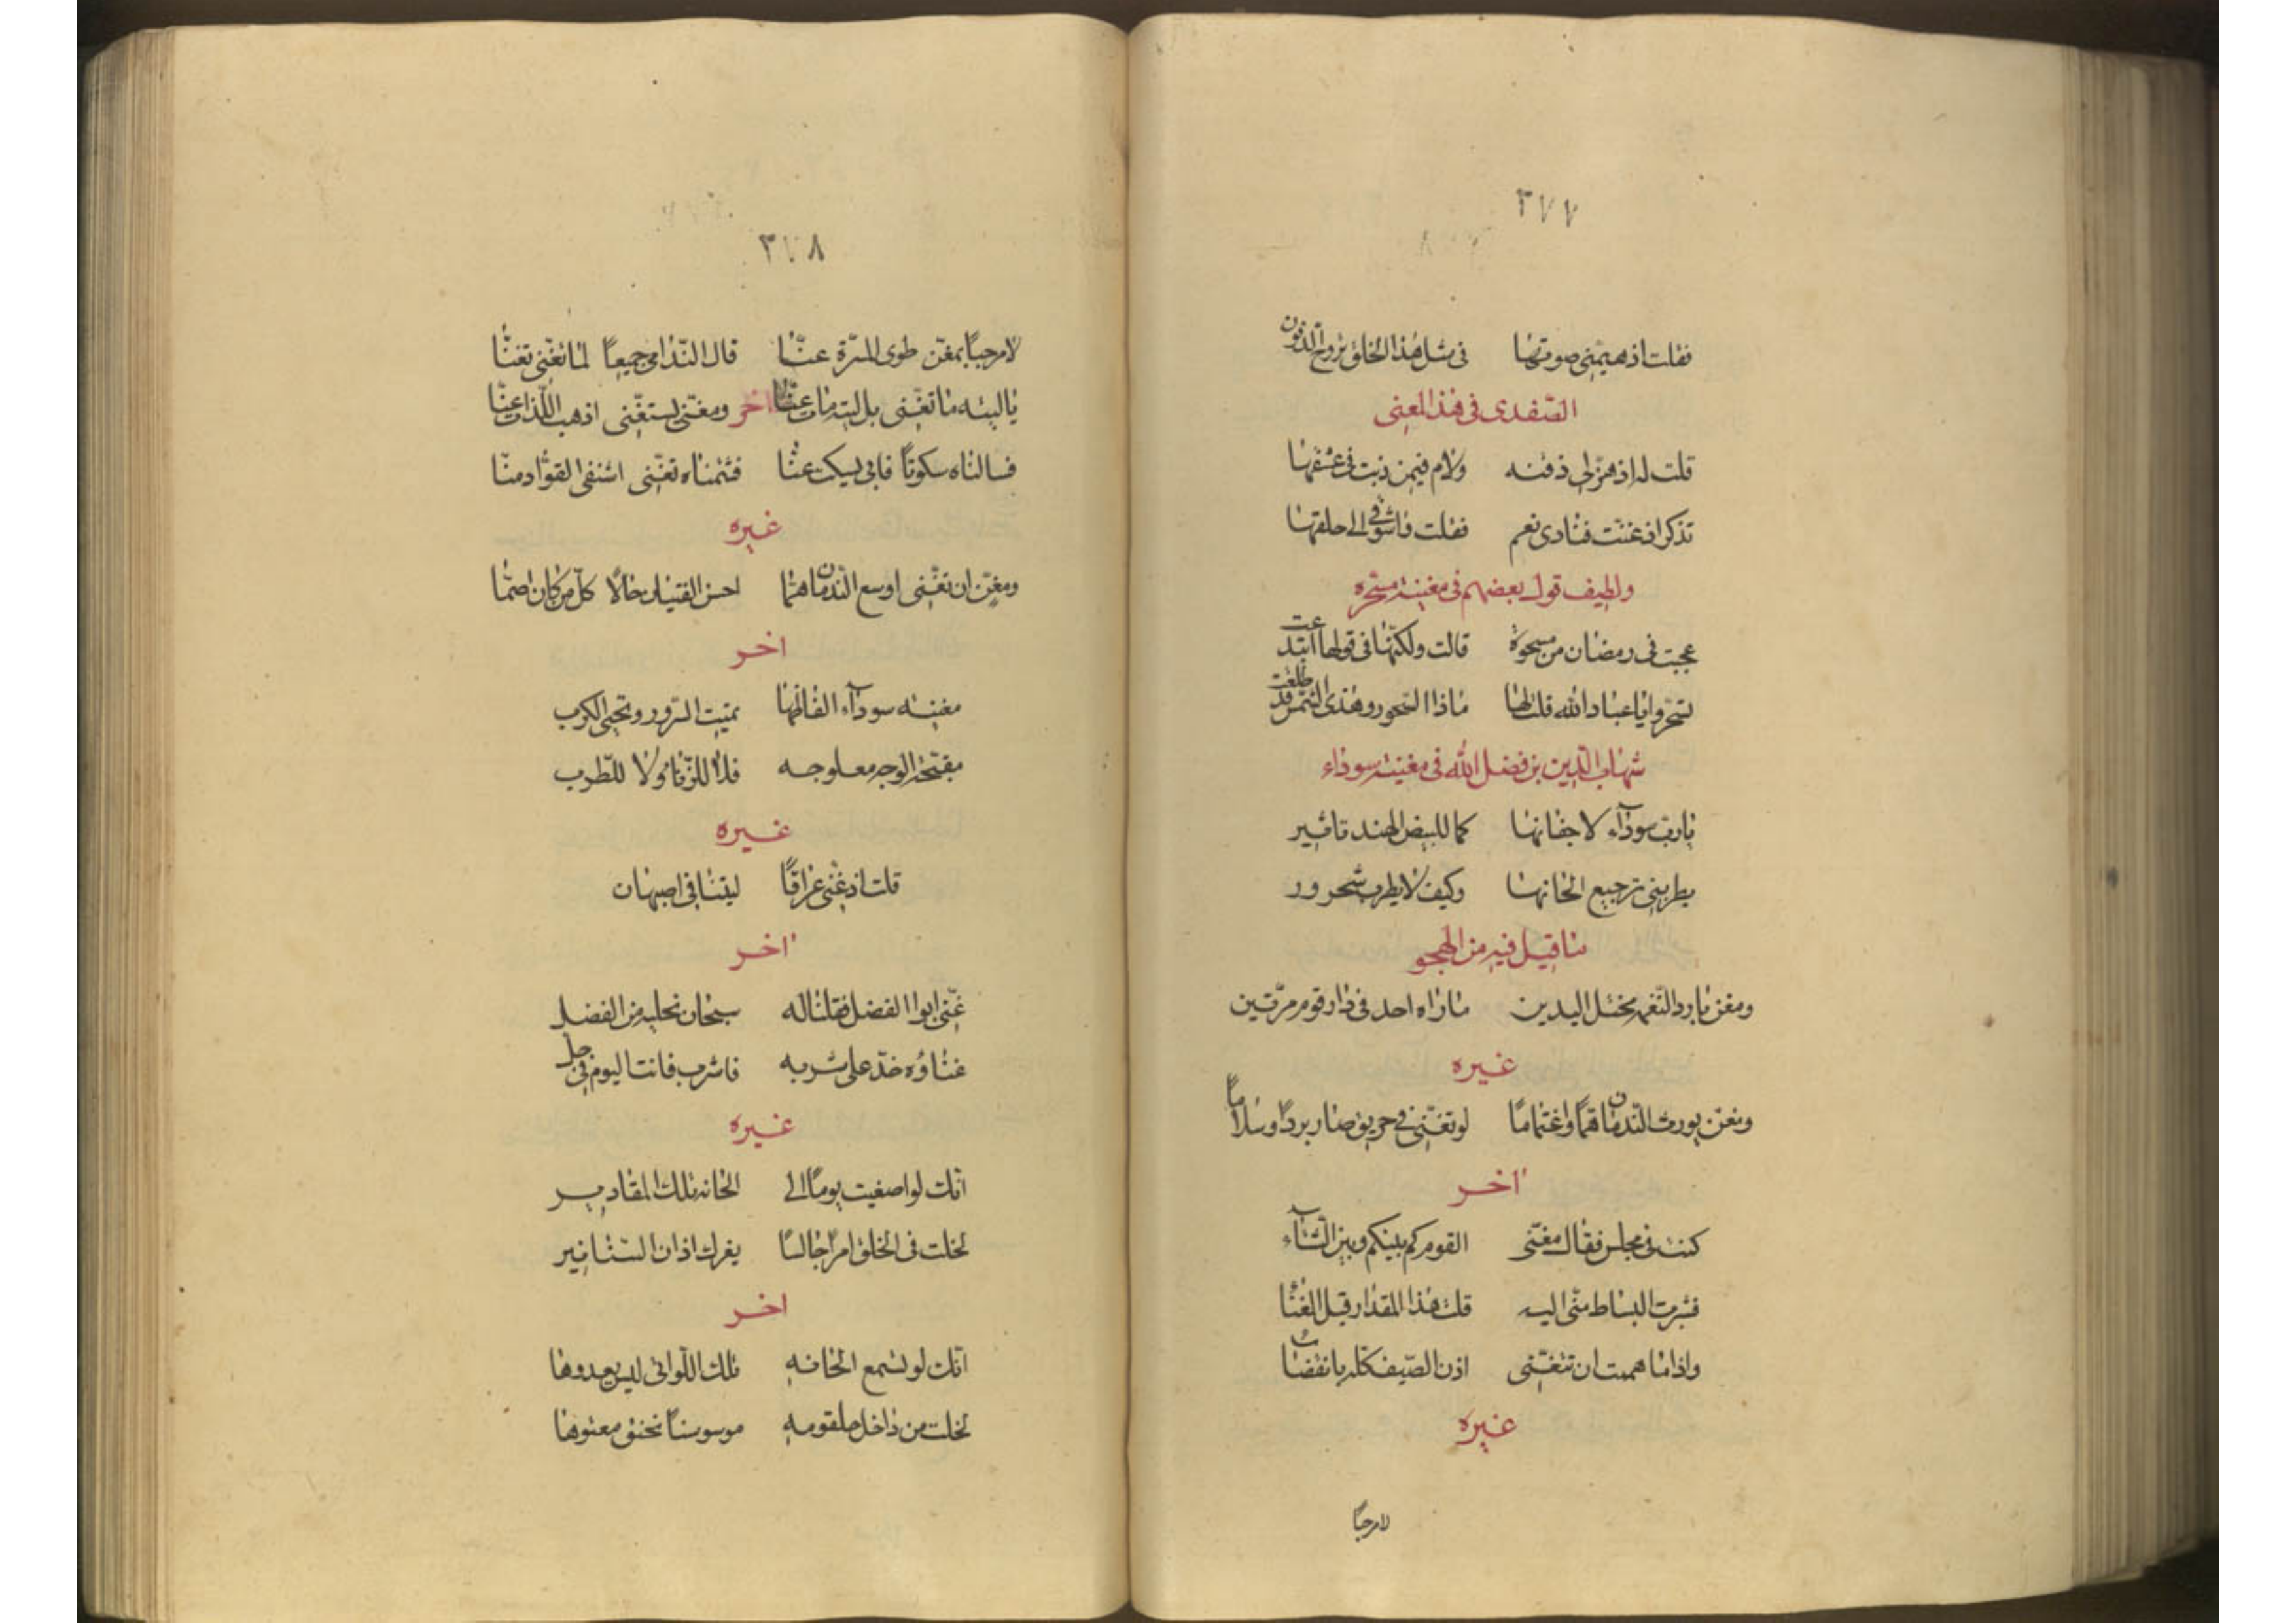 ٣٧٧
فقلت اذ هيمنى صوتها فى مثل هذا الحلق تروح الذقون
الصفدى فى هذا المعنى
قلت له اذ هز لى ذقنه ولام فيمن ذبت فى عشقها
تذكر اذ غنت فنادى نعم فقلت واشوقى الى حلقها
ولطيف قول بعضهم فى مغنية مسحّره
عجبت فى رمضان من مسحرة قالت ولكنّها فى قولها ابتدعت
تسحّروا يا عباد الله قلت لها ماذا السحور وهذى الشمس قد طلعت
شهاب الدّين بن فضل الله فى مغنية سوداء
يا رب سودآء لاجفانها كما للبيض الهند تاثير
يطربنى ترجيع الحانها وكيف لا يطرب شحرور
ما قيل فيه من الهجو
ومغن بارد النّغمة مختل اليدين ما راه احد فى دار قوم مرّتين
غيره
ومغن يورث النّدمان همّا واغتماما لو تغنّى فى حريق صار بردا وسلاما
اخر
كنت فى مجلس فقال مغنّى القوم كم بينكم وبين الشتآء
فشبرت البساط منّى اليه قلت هذا المقدار قبل الغنا
واذا ما هممت ان تتغنّى اذن الصّيف كله بانقضاء
غيره
لا مرحبًا
٣٧٨
لا مرحبًا بمغنّ طوى المسرّة عنّا قال النّدامى جميعًا لما تغنّى تعنّا
يا ليته ما تغنّى بل ليته مات عنّا اخر ومغنّى يتغنّى اذهب اللّذات عنّا
فسالناه سكوتًا فابى يسكت عنّا فشتمناه تغنّى اشتفى القوّاد منّا
غيره
ومغنّ ان تغنّى اوسع النّدمان همّا احسن الفتيان حالًا كلّ من كان اصمّا
اخر
مغنيه سودآء الفاظها تميت السّرور وتحيى الكرب
مقبّحة الوجه معلوجه فلا للزّنا ولا للطّرب
غيره
قلت اذ غنى عراقًا ليتنا فى اصبهان
اخر
غنّى ابوا الفضل فقلنا له سبحان نحليه من الفضل
غناؤه حدّ على شربه فاشرب فانت اليوم فى حل
غيره
انّك لو اصغيت يومًا الى الحانه تلك المقادير
لخلت فى الحلق امرًا جالسًا يفرك اذان السّنانير
اخر
انّك لو تسمع الحانه تلك اللّواتى ليس يعدوها
لخلت من داخل حلقومه موسوسًا يخنق معتوها